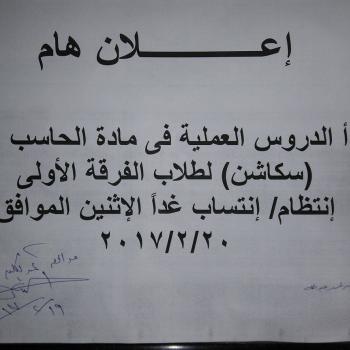 إعـــلان هام
أ الدروس العملية فى مادة الحاسب
(سكاشن) لطلاب الفرقة الأولى
إنتظام/ إنتساب غداً الإثنين الموافق
٢٠١٧/٢/٢٠